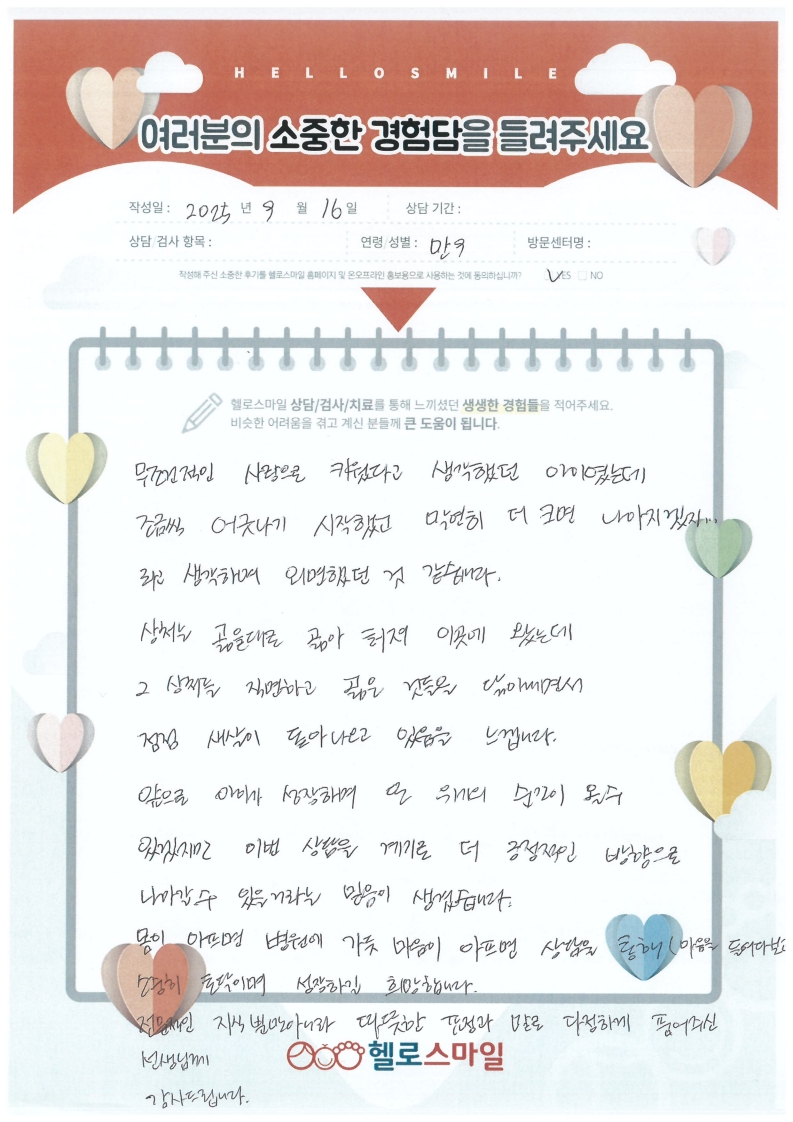 HELLOSMILE
여러분의 소중한 경험담을 들려주세요
작성일 : 2025 년 9 월 16 일 상담 기간 :
상담/검사 항목 : 연령/성별 : 만9 방문센터명 :
작성해 주신 소중한 후기를 헬로스마일 홈페이지 및 온오프라인 홍보용으로 사용하는 것에 동의하십니까? YES NO
헬로스마일 상담/검사/치료를 통해 느끼셨던 생생한 경험들을 적어주세요.
비슷한 어려움을 겪고 계신 분들께 큰 도움이 됩니다.
무조건적인 사랑으로 키웠다고 생각했던 아이였는데
조금씩 어긋나기 시작했고 막연히 더 크면 나아지겠지...
라고 생각하며 외면했던 것 같습니다.
상처는 곪을대로 곪아 터져 이곳에 왔는데
그 상처를 직면하고 곪은 것들을 닦아내면서
점점 새살이 돋아나오고 있음을 느낍니다.
앞으로 아이가 성장하며 또 위기의 순간이 올수
있겠지만 이번 상담을 계기로 더 긍정적인 방향으로
나아갈수 있을거라는 믿음이 생겼습니다.
몸이 아프면 병원에 가듯 마음이 아프면 상담을 통해 (마음을 들여다보고
천천히 토닥이며 성장하길 희망합니다.
전문적인 지식 뿐만아니라 따뜻한 표정과 말로 다정하게 품어주신
선생님께
감사드립니다.
헬로스마일